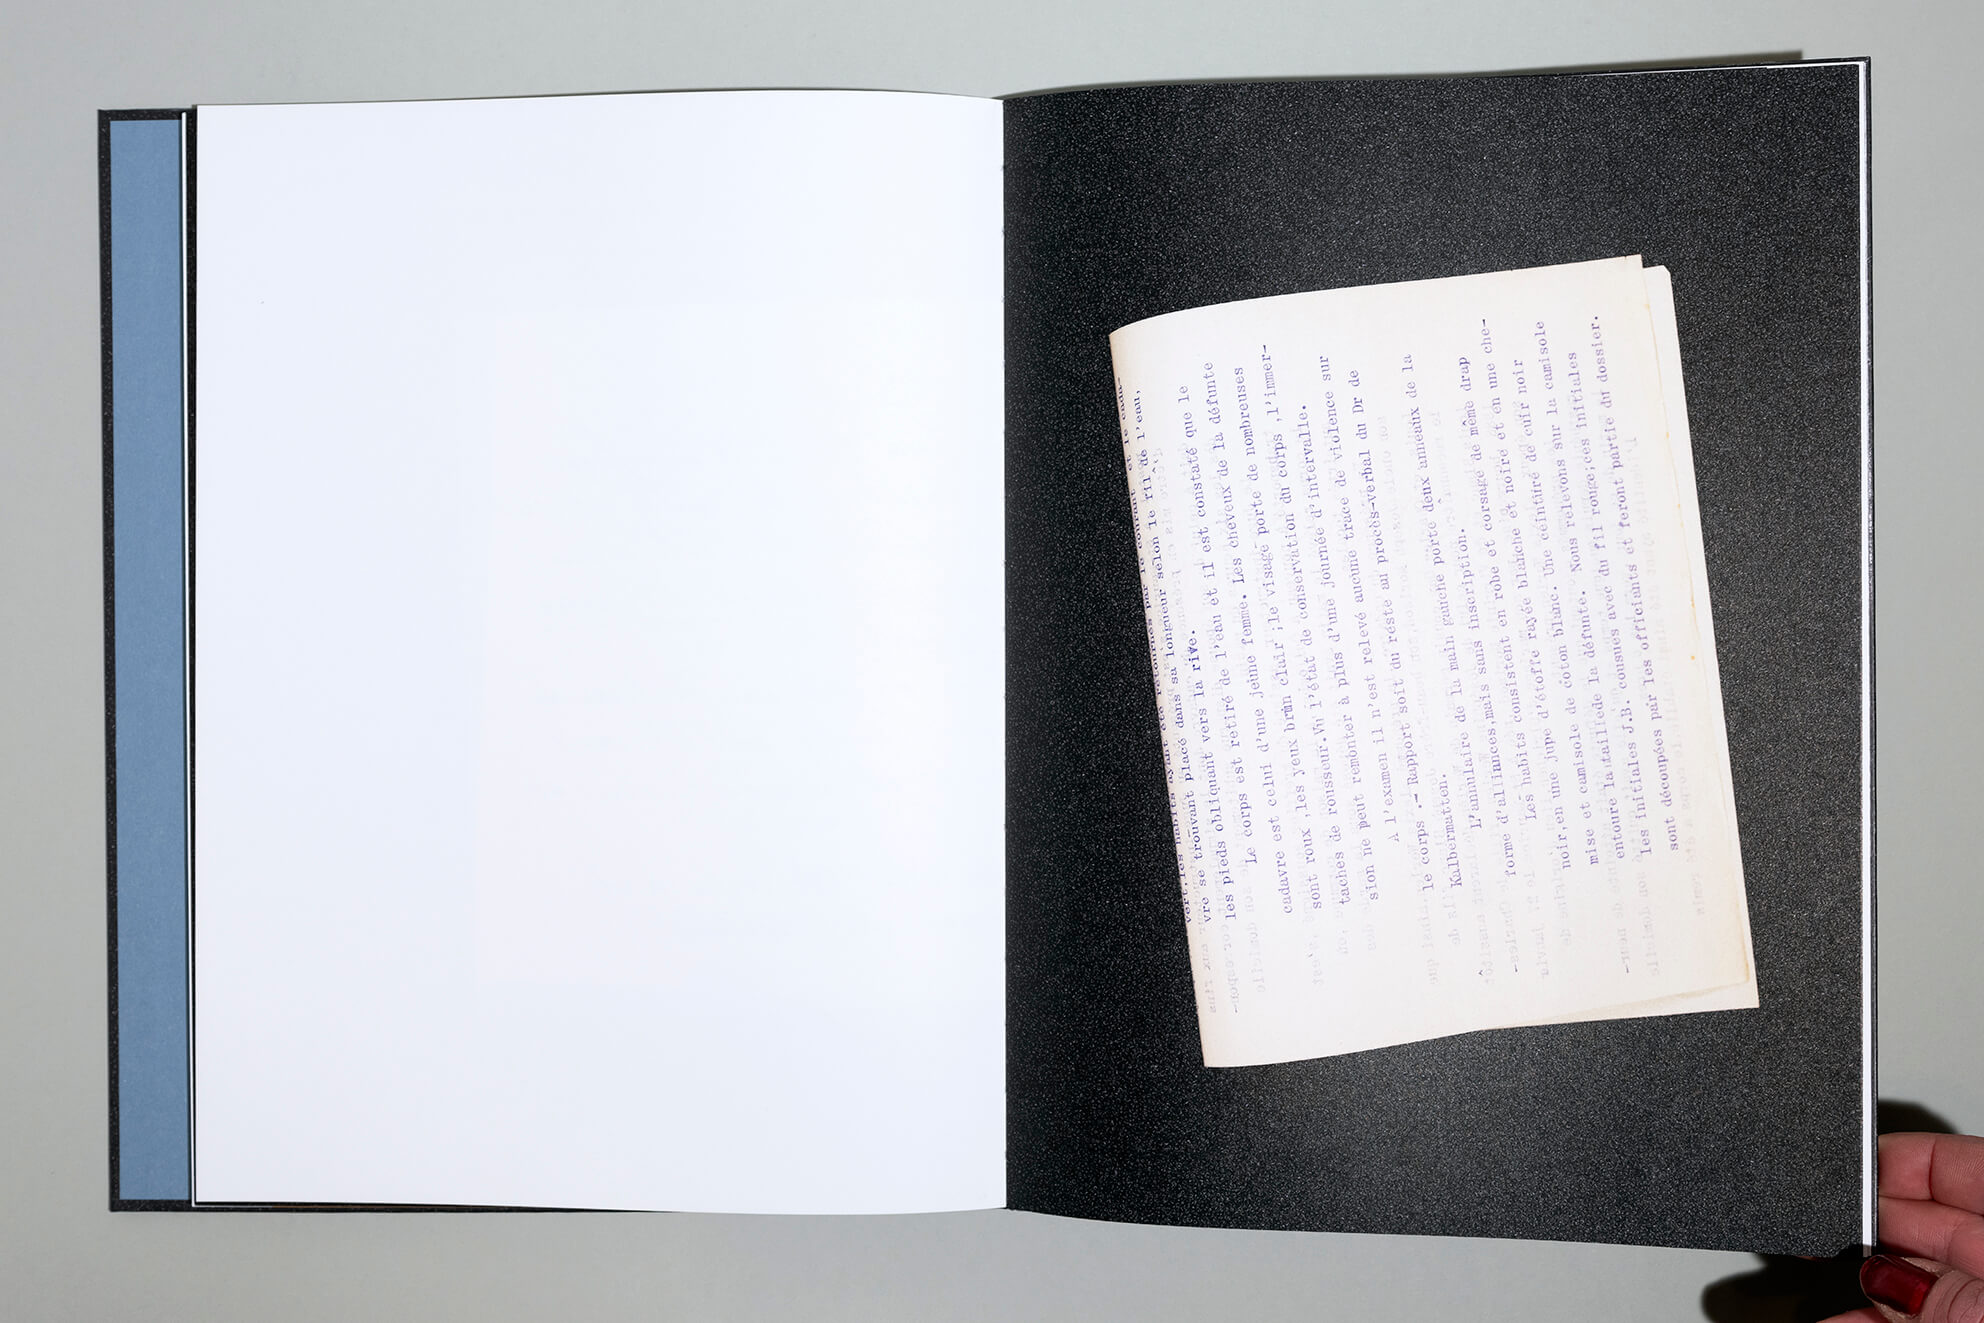 vert, les habits ayant été retournés par le courant et le cada-
vre se trouvant placé dans sa longueur selon le fil de l'eau,
les pieds obliquant vers la rive.
Le corps est retiré de l'eau et il est constaté que le
cadavre est celui d'une jeune femme. Les cheveux de la défunte
sont roux ,les yeux brun clair ;le visage porte de nombreuses
taches de rousseur.Vu l'état de conservation du corps ,l'immer-
sion ne peut remonter à plus d'une journée d'intervalle.
A l'examen il n'est relevé aucune trace de violence sur
le corps .- Rapport soit du reste au procès-verbal du Dr de
Kalbermatten.
L'annulaire de la main gauche porte deux anneaux de la
forme d'alliances,mais sans inscription.
Les habits consistent en robe et corsage de même drap
noir,en une jupe d'étoffe rayée blanche et noire et en une che-
mise et camisole de coton blanc. Une ceinture de cuir noir
entoure la taillede la défunte. Nous relevons sur la camisole
les initiales J.B. cousues avec du fil rouge;ces initiales
sont découpées par les officiants et feront partie du dossier.